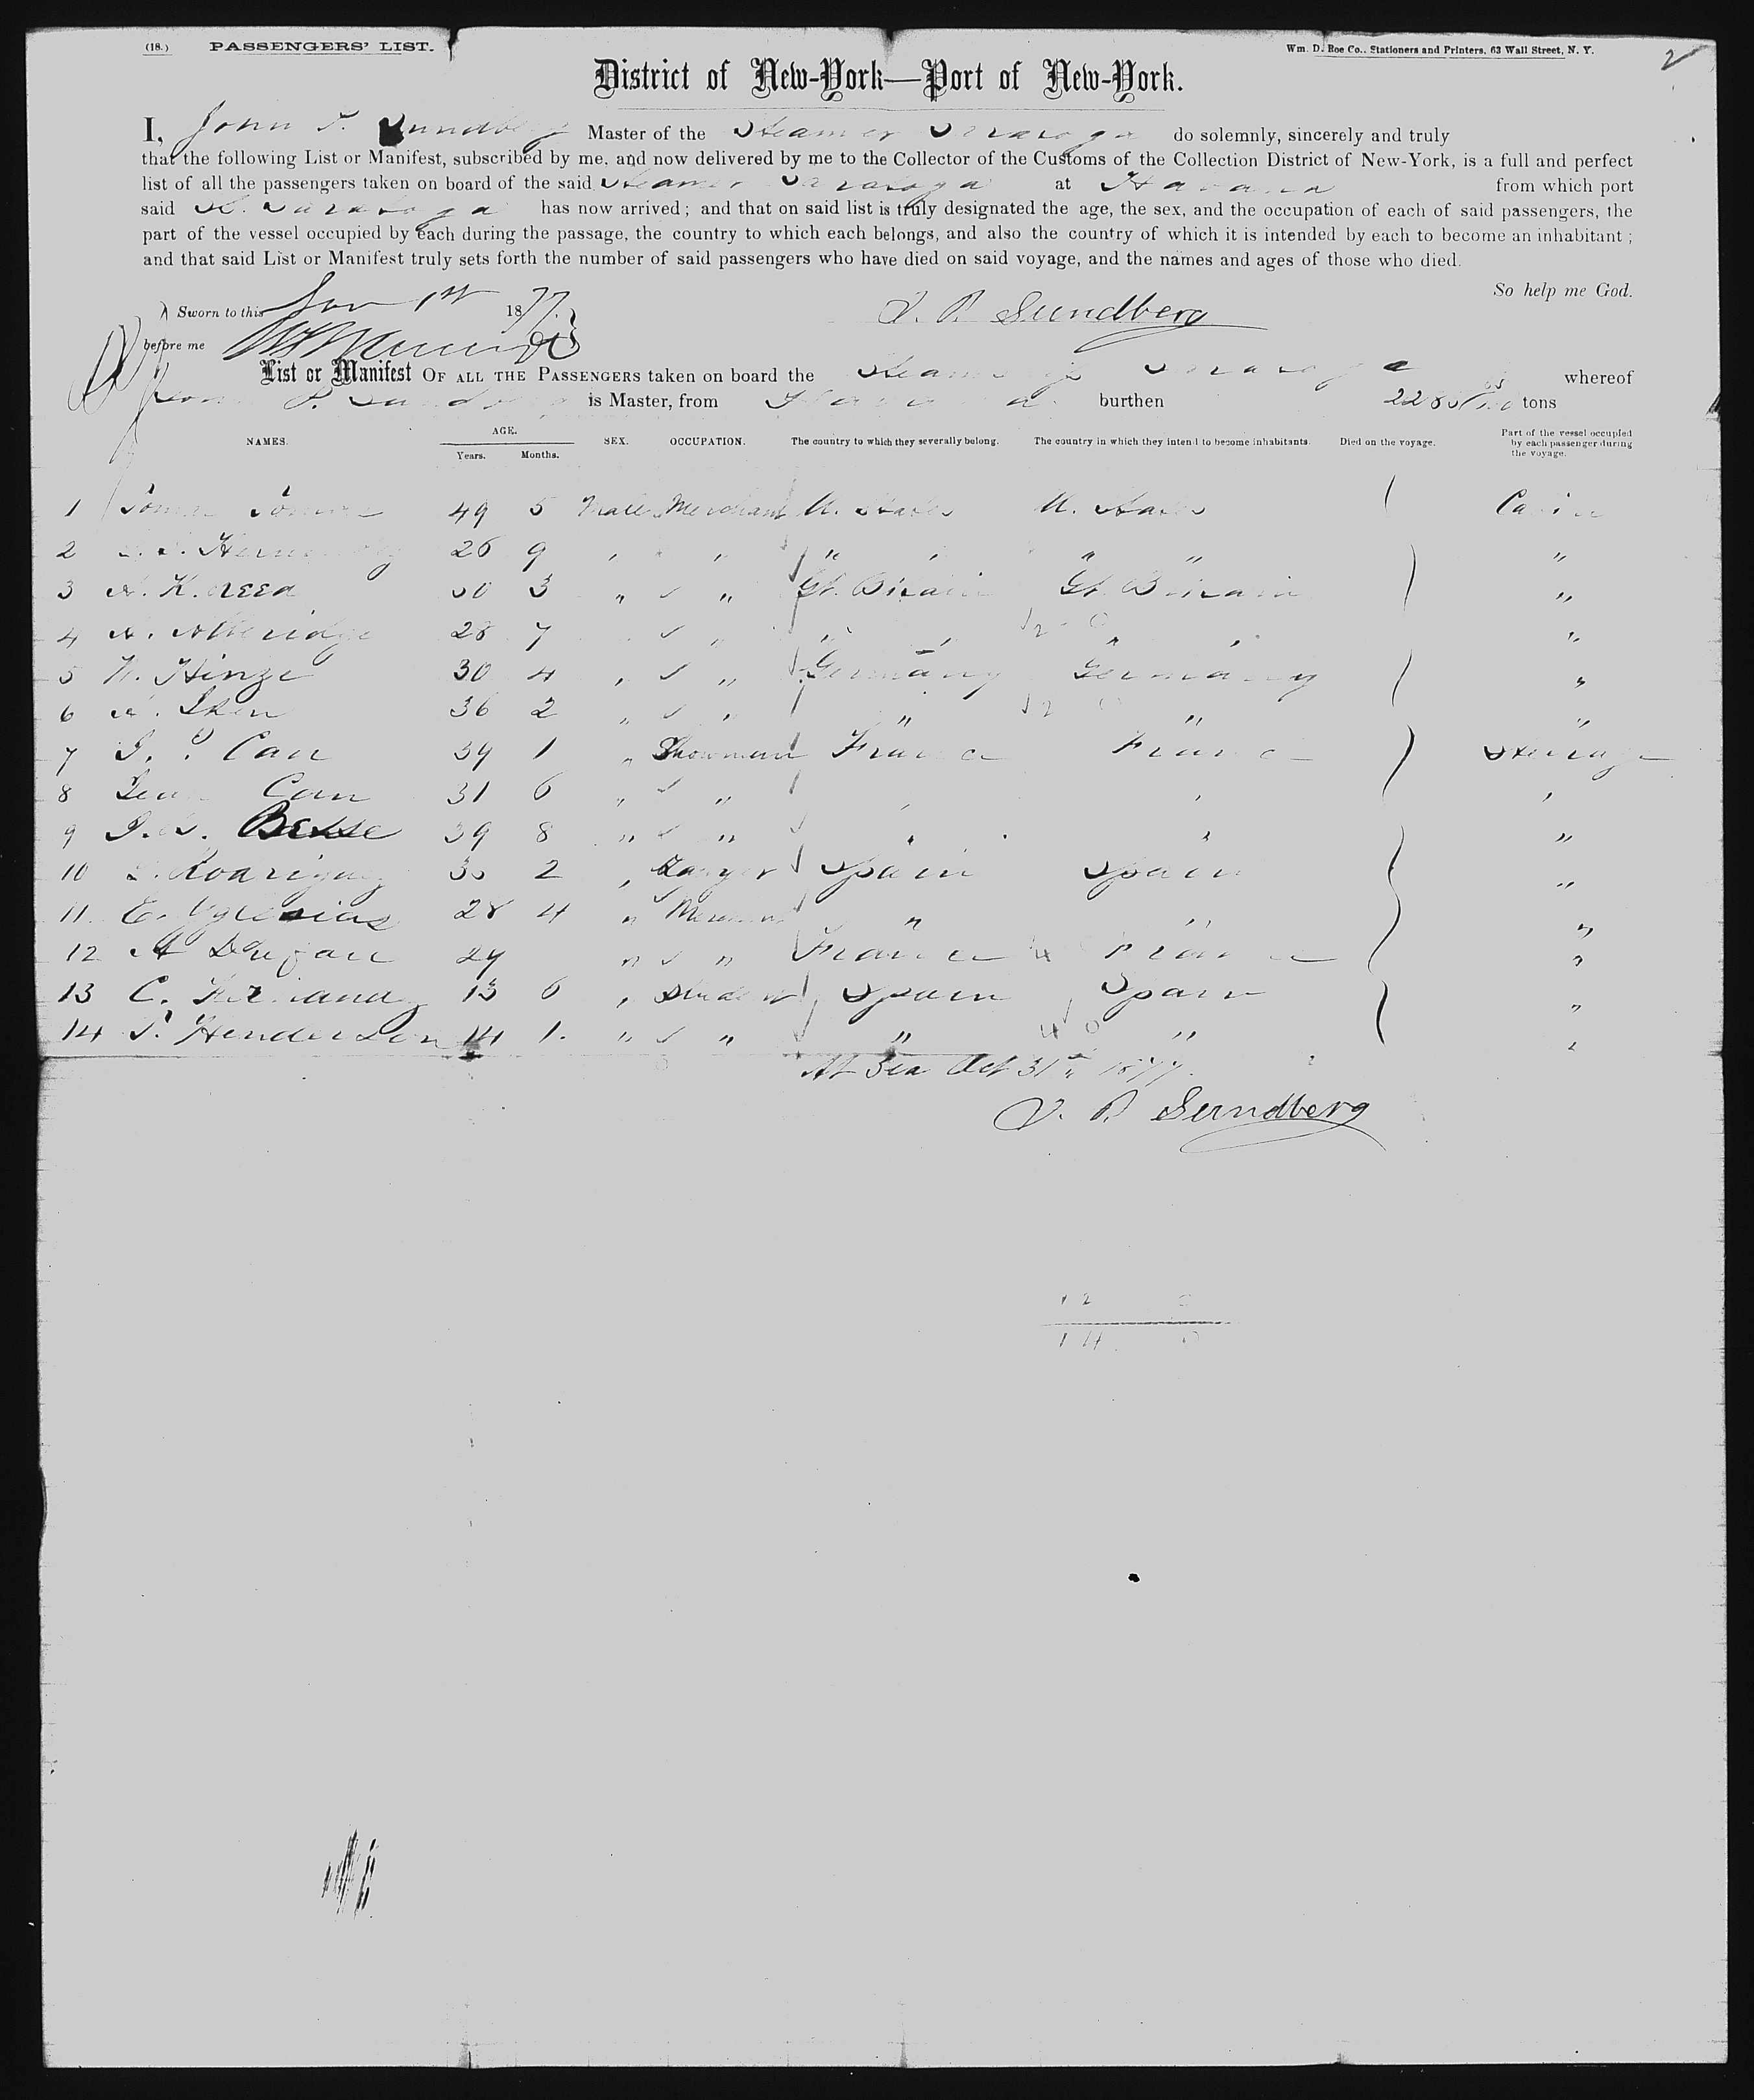 (18.) PASSENGERS' LIST. Wm. D. Roe Co., Stationers and Printers, 63 Wall Street, N. Y. 2
District of New-York—Port of New-York.
I, John P. Sundberg Master of the Steamer Saratoga do solemnly, sincerely and truly
that the following List or Manifest, subscribed by me, and now delivered by me to the Collector of the Customs of the Collection District of New-York, is a full and perfect
list of all the passengers taken on board of the said Steamer Saratoga at Havana from which port
said S. Saratoga has now arrived; and that on said list is truly designated the age, the sex, and the occupation of each of said passengers, the
part of the vessel occupied by each during the passage, the country to which each belongs, and also the country of which it is intended by each to become an inhabitant;
and that said List or Manifest truly sets forth the number of said passengers who have died on said voyage, and the names and ages of those who died.
So help me God.
Sworn to this Nov 1st 1877. J. P. Sundberg
before me
List or Manifest OF ALL THE PASSENGERS taken on board the Steamship Saratoga whereof
John P. Sundberg is Master, from Havana burthen tons
NAMES. AGE. Years. Months. SEX. OCCUPATION. The country to which they severally belong. The country in which they intend to become inhabitants. Died on the voyage. Part of the vessel occupied by each passenger during the voyage.
1 49 5 Male Merchant U. States U. States Cabin
2 26 9 " " " " "
3 K. Reed 3 " " Gt. Britain Gt. Britain "
4 28 7 " " " " "
5 Hinze 30 4 " " Germany Germany "
6 36 2 " " " " "
7 Carr 1 " Showman France France Steerage
8 31 6 " " " " "
9 39 8 " " " " "
10 Rodriguez 2 " Lawyer Spain Spain "
11 E. Yglesias 28 4 " Merchant " " "
12 A 29 " " France France "
13 C. Fernandez 13 6 " Student Spain Spain "
14 Henderson 14 1. " " " " "
At Sea Oct 31st 1877.
J. P. Sundberg
12 2
14 0